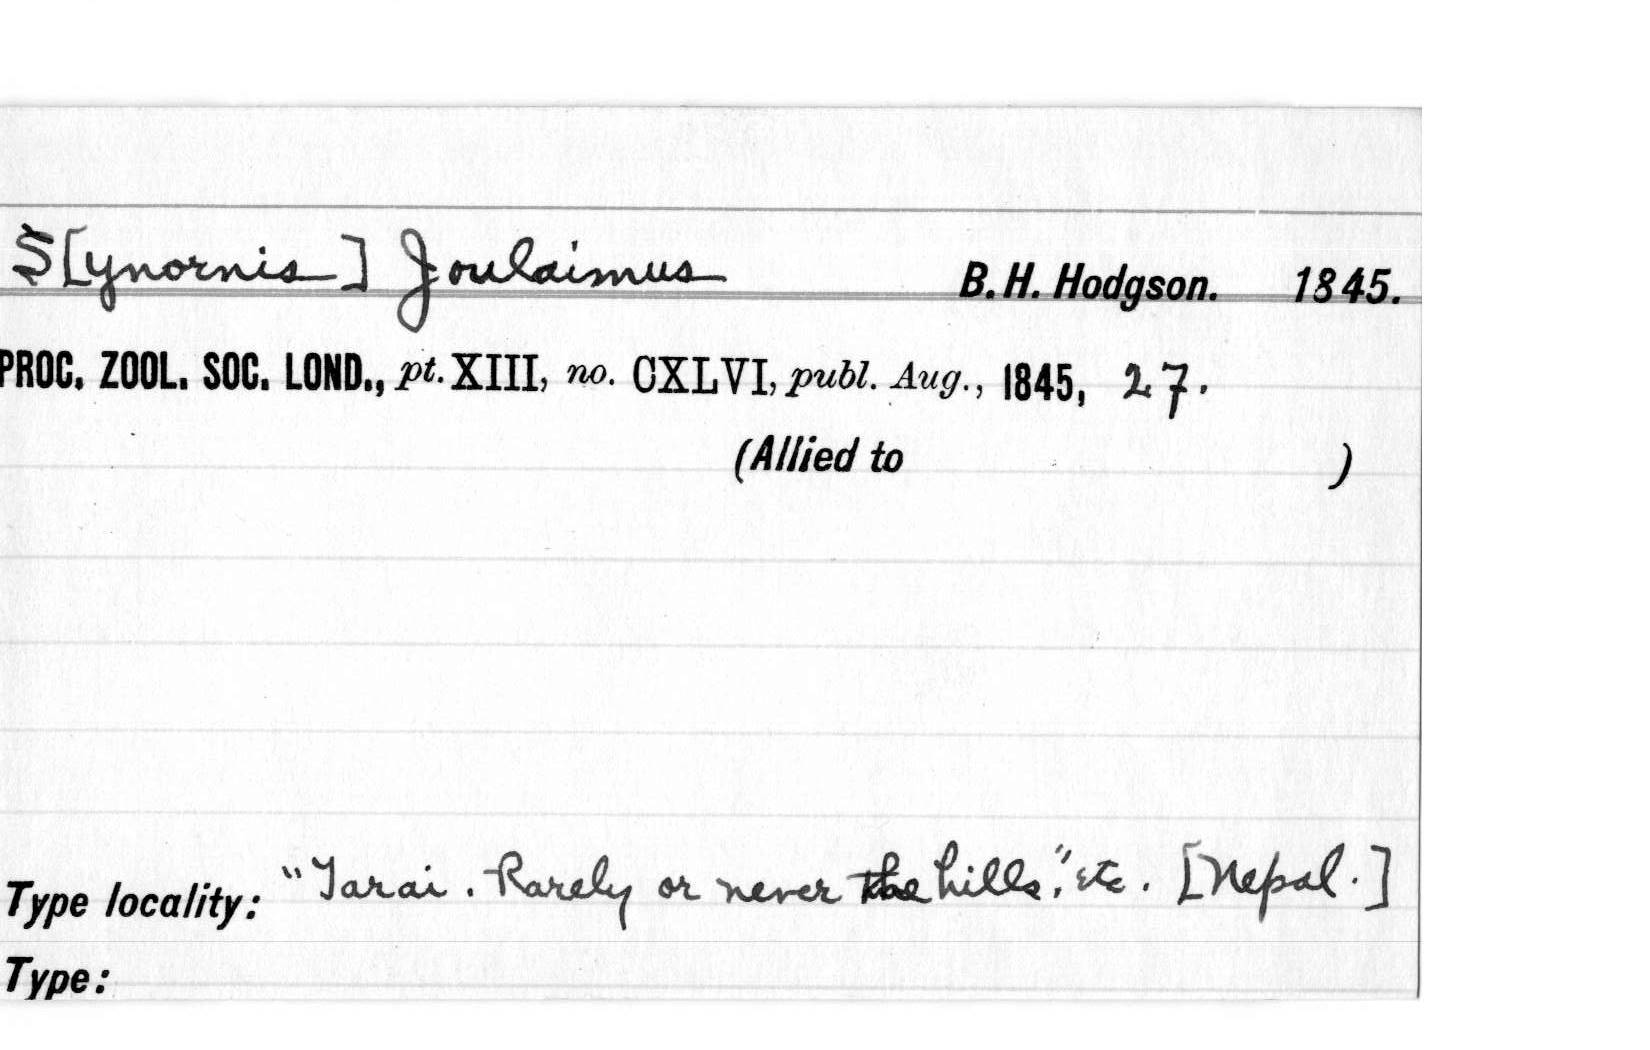 S[ynornis] Joulaimus B. H. Hodgson. 1845.
PROC. ZOOL. SOC. LOND., pt. XIII, no. CXLVI, publ. Aug., 1845, 27.
(Allied to )
Type locality: "Tarai. Rarely or never the hills," etc. [Nepal.]
Type: